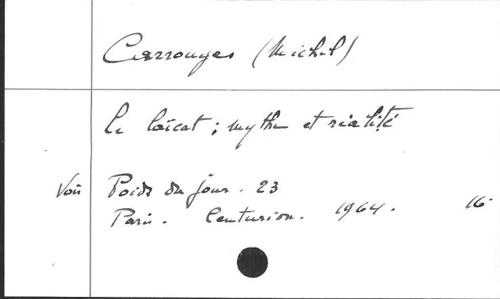 Carrouges (Michel)
Le laïcat ; mythe et réalité
Voir Poids du jour. 23
Paris. Centurion. 1964. 16.